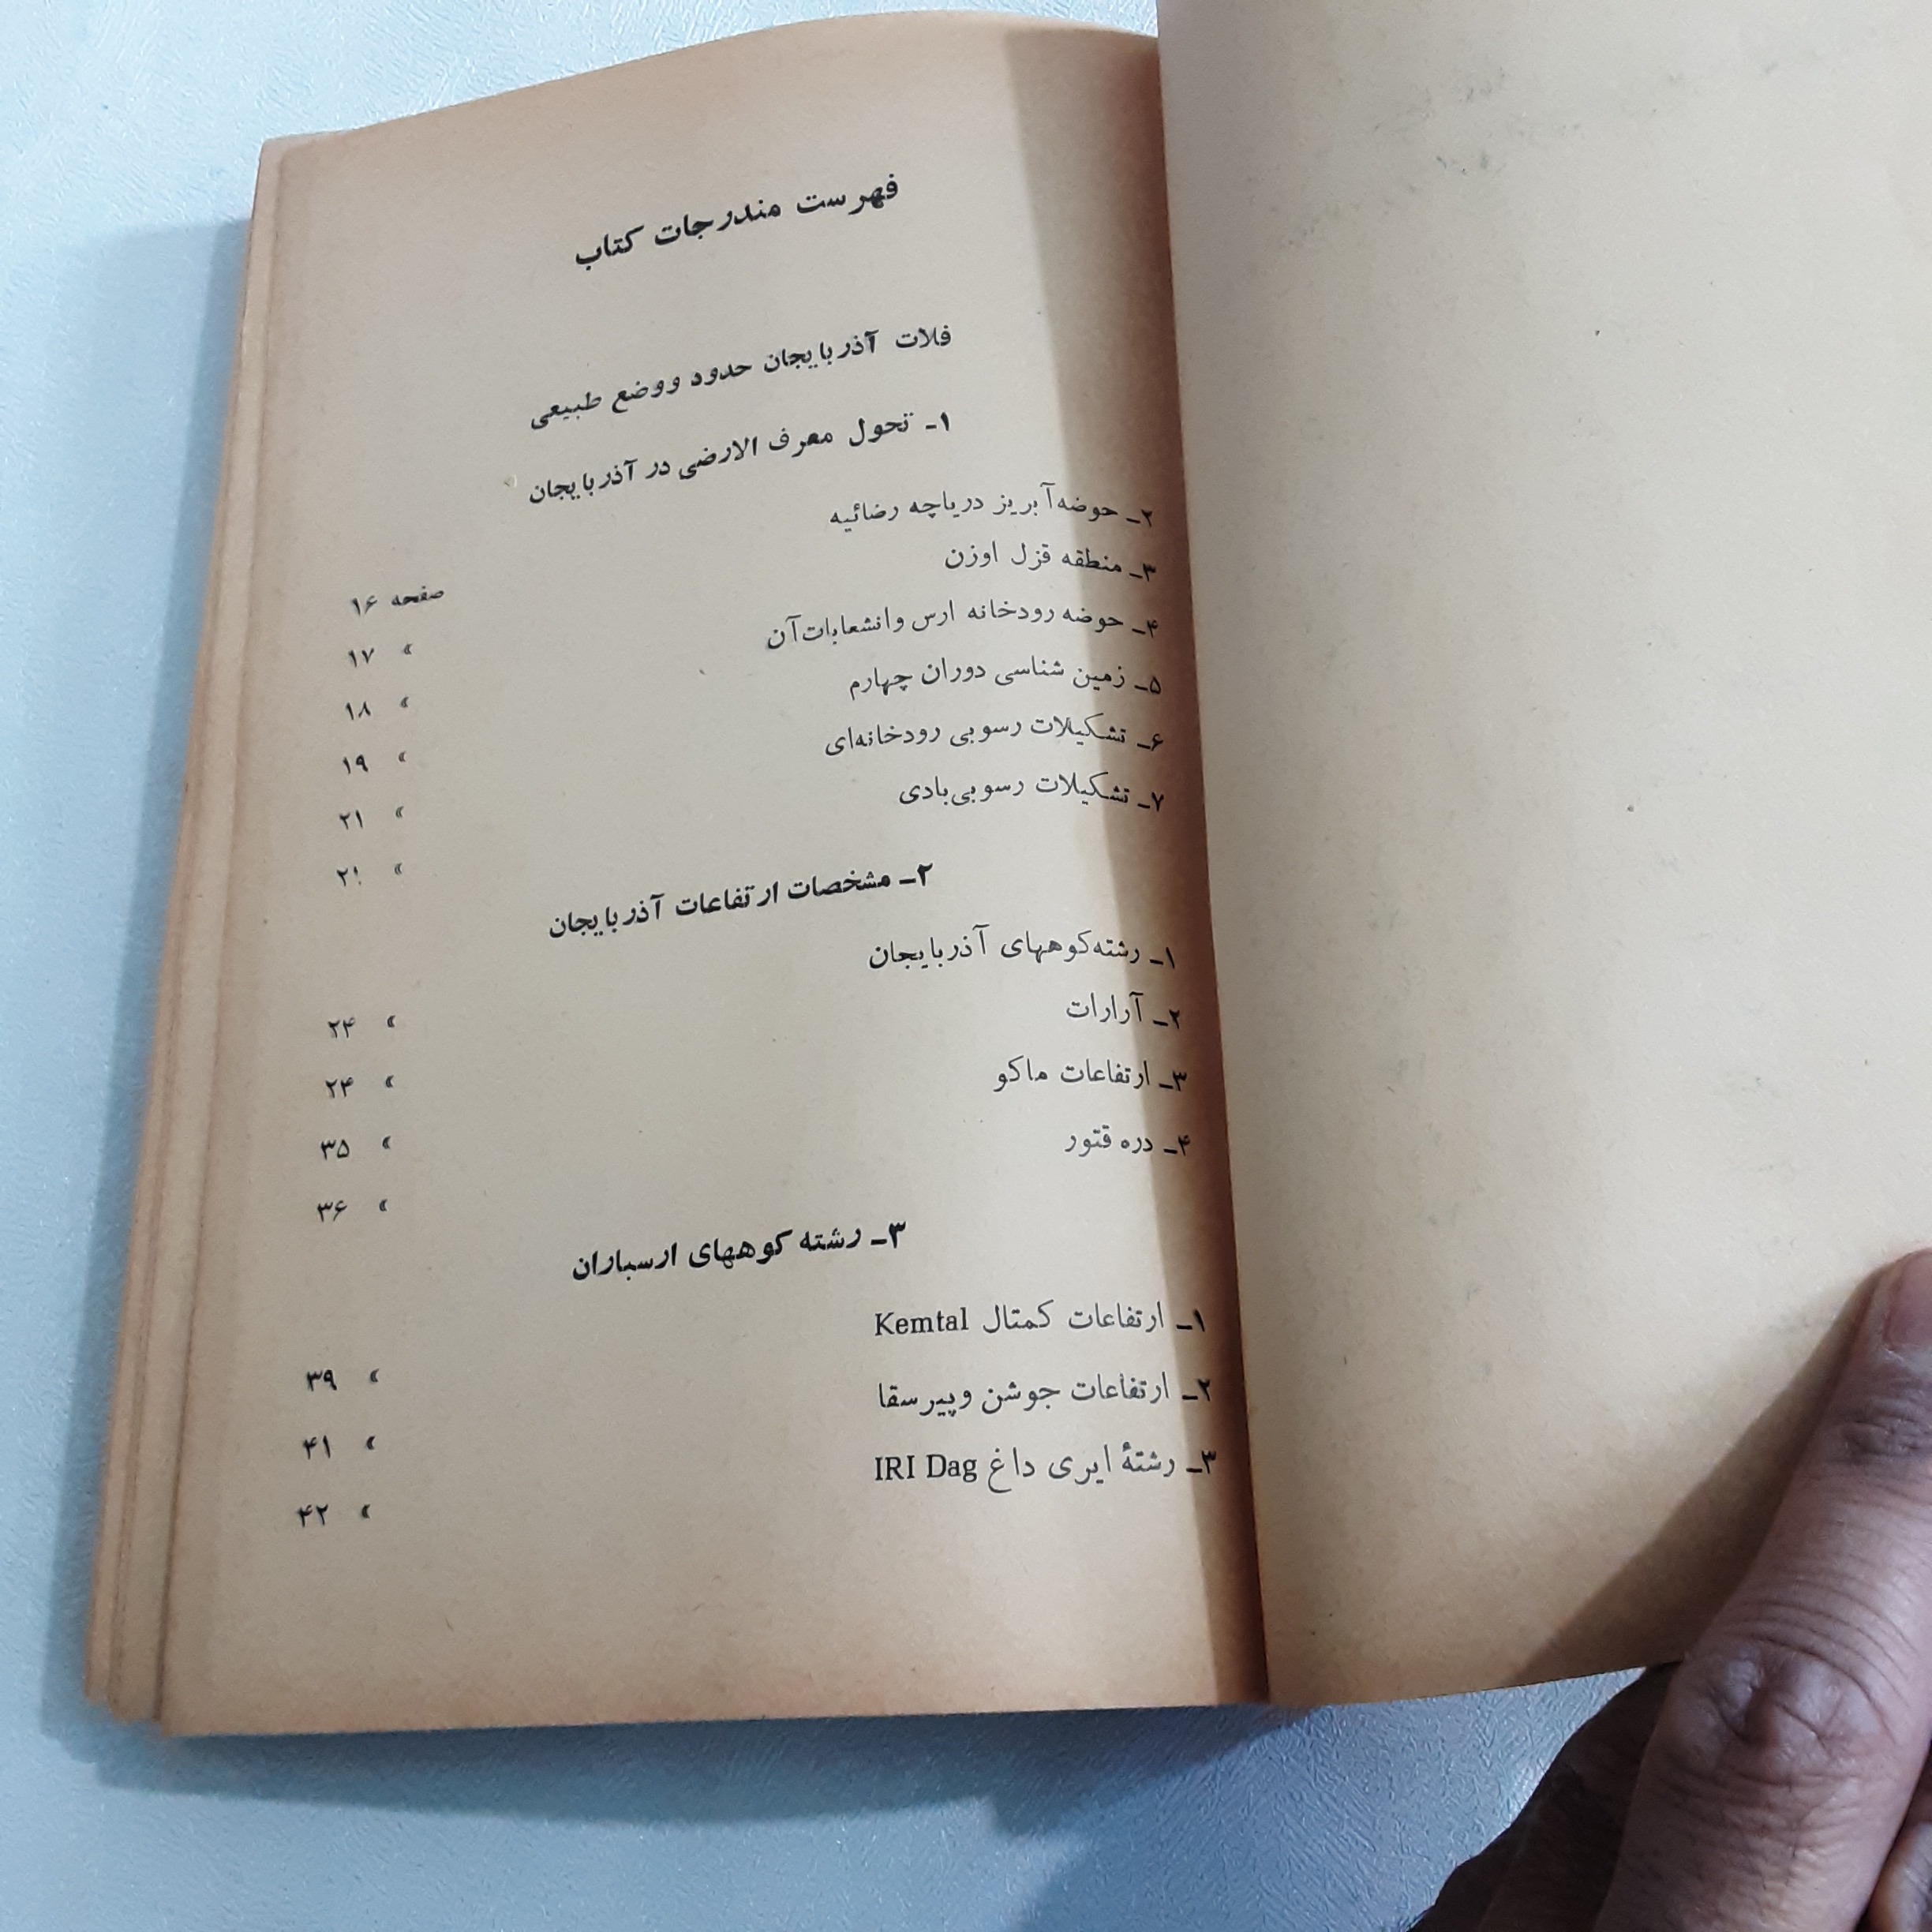 فهرست مندرجات کتاب
فلات آذربایجان حدود ووضع طبیعی
۱ـ تحول معرف الارضی در آذربایجان
۲ـ حوضه‌آبریز دریاچه رضائیه صفحه ۱۶
۳ـ منطقه قزل اوزن » ۱۷
۴ـ حوضه رودخانه ارس وانشعابات‌آن » ۱۸
۵ـ زمین شناسی دوران چهارم » ۱۹
۶ـ تشکیلات رسوبی رودخانه‌ای » ۲۱
۷ـ تشکیلات رسوبی‌بادی » ۲۱
۲ـ مشخصات ارتفاعات آذربایجان
۱ـ رشته‌کوههای آذربایجان » ۲۴
۲ـ آرارات » ۲۴
۳ـ ارتفاعات ماکو » ۳۵
۴ـ دره قتور » ۳۶
۳ـ رشته کوههای ارسباران
۱ـ ارتفاعات کمتال Kemtal » ۳۹
۲ـ ارتفاعات جوشن وپیرسقا » ۴۱
۳ـ رشتهٔ ایری داغ IRI Dag » ۴۲